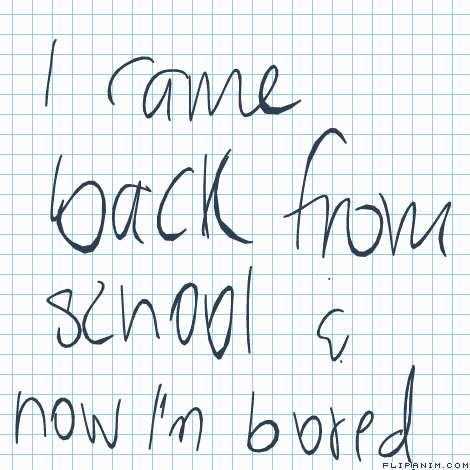 I came
back from
school &
now I'm bored
FLIPANIM.COM